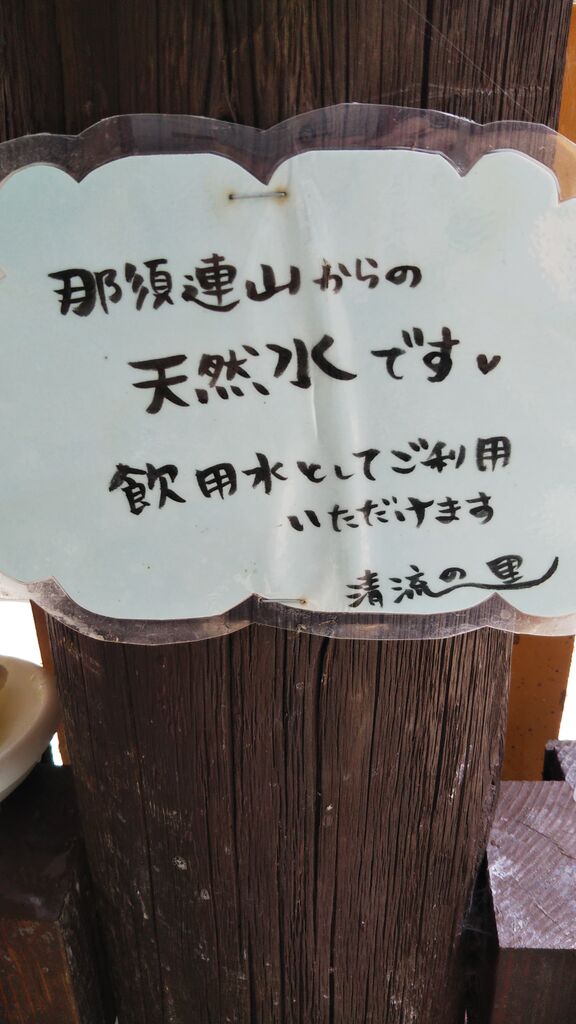 那須連山からの
天然水です♥
飲用水としてご利用
いただけます
清流の里